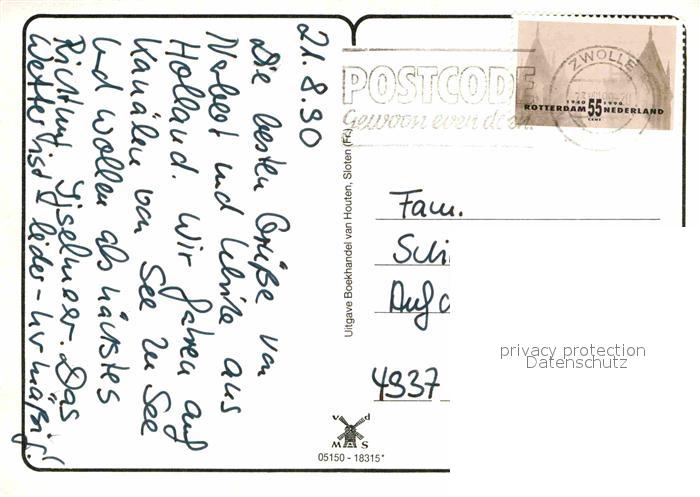 21.8.90
Die besten Grüße von
Norbert und Ulrike aus
Holland. Wir fahren auf
Kanälen von See zu See
und wollen als nächstes
Richtung Ijselmeer. Das
Wetter ist leider nur mäßig!
POSTCODE
Gewoon even doen.
ZWOLLE
1940 1990
ROTTERDAM 55 NEDERLAND
CENT
Uitgave Boekhandel van Houten, Sloten (Fr.)
Fam.
Schi
Auf d
4937
privacy protection
Datenschutz
v d
MAS
05150 - 18315*